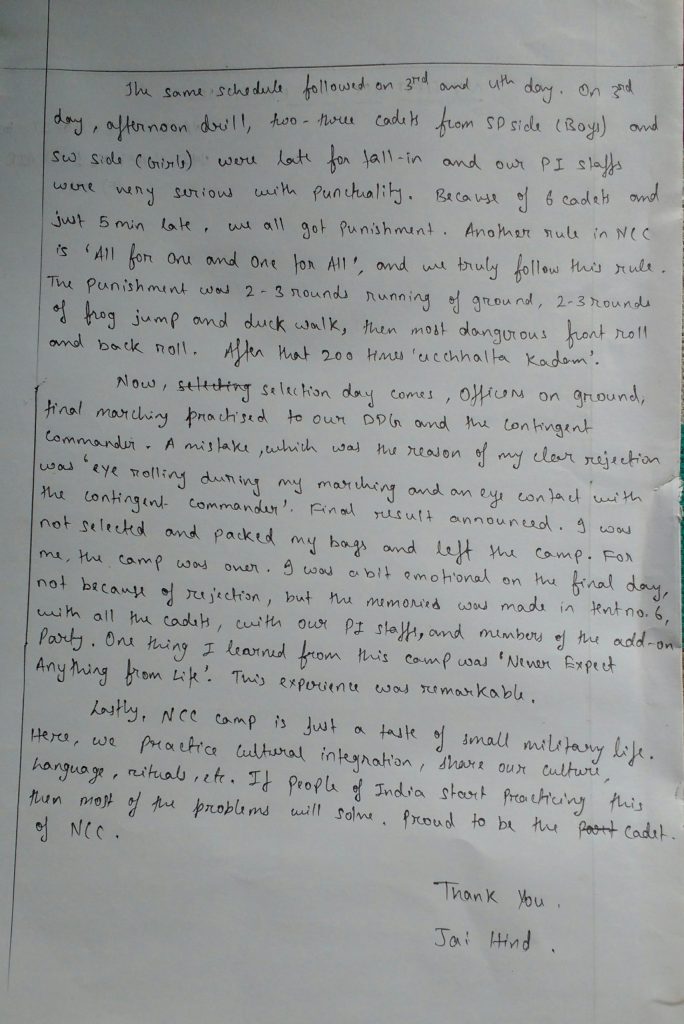 The same schedule followed on 3rd and 4th day. On 3rd
day, afternoon drill, two-three cadets from SD side (Boys) and
SW side (Girls) were late for fall-in and our PI staffs
were very serious with punctuality. Because of 6 cadets and
just 5 min late, we all got punishment. Another rule in NCC
is 'All for One and One for All', and we truly follow this rule.
The punishment was 2-3 rounds running of ground, 2-3 rounds
of frog jump and duck walk, then most dangerous front roll
and back roll. After that 200 times 'ucchhalta Kadam'.
Now, selecting selection day comes, Officers on ground,
final marching practised to our DDG and the contingent
commander. A mistake, which was the reason of my clear rejection
was 'eye rolling during my marching and an eye contact with
the contingent commander'. Final result announced. I was
not selected and packed my bags and left the camp. For
me, the camp was over. I was a bit emotional on the final day,
not because of rejection, but the memories was made in tent no. 6,
with all the cadets, with our PI staffs, and members of the add-on
Party. One thing I learned from this camp was 'Never Expect
Anything from Life'. This experience was remarkable.
Lastly, NCC camp is Just a taste of small military life.
Here, we practice cultural integration, share our culture,
language, rituals, etc. If people of India start Practicing this
then most of the problems will solve. Proud to be the Part cadet
of NCC.
Thank You.
Jai Hind.